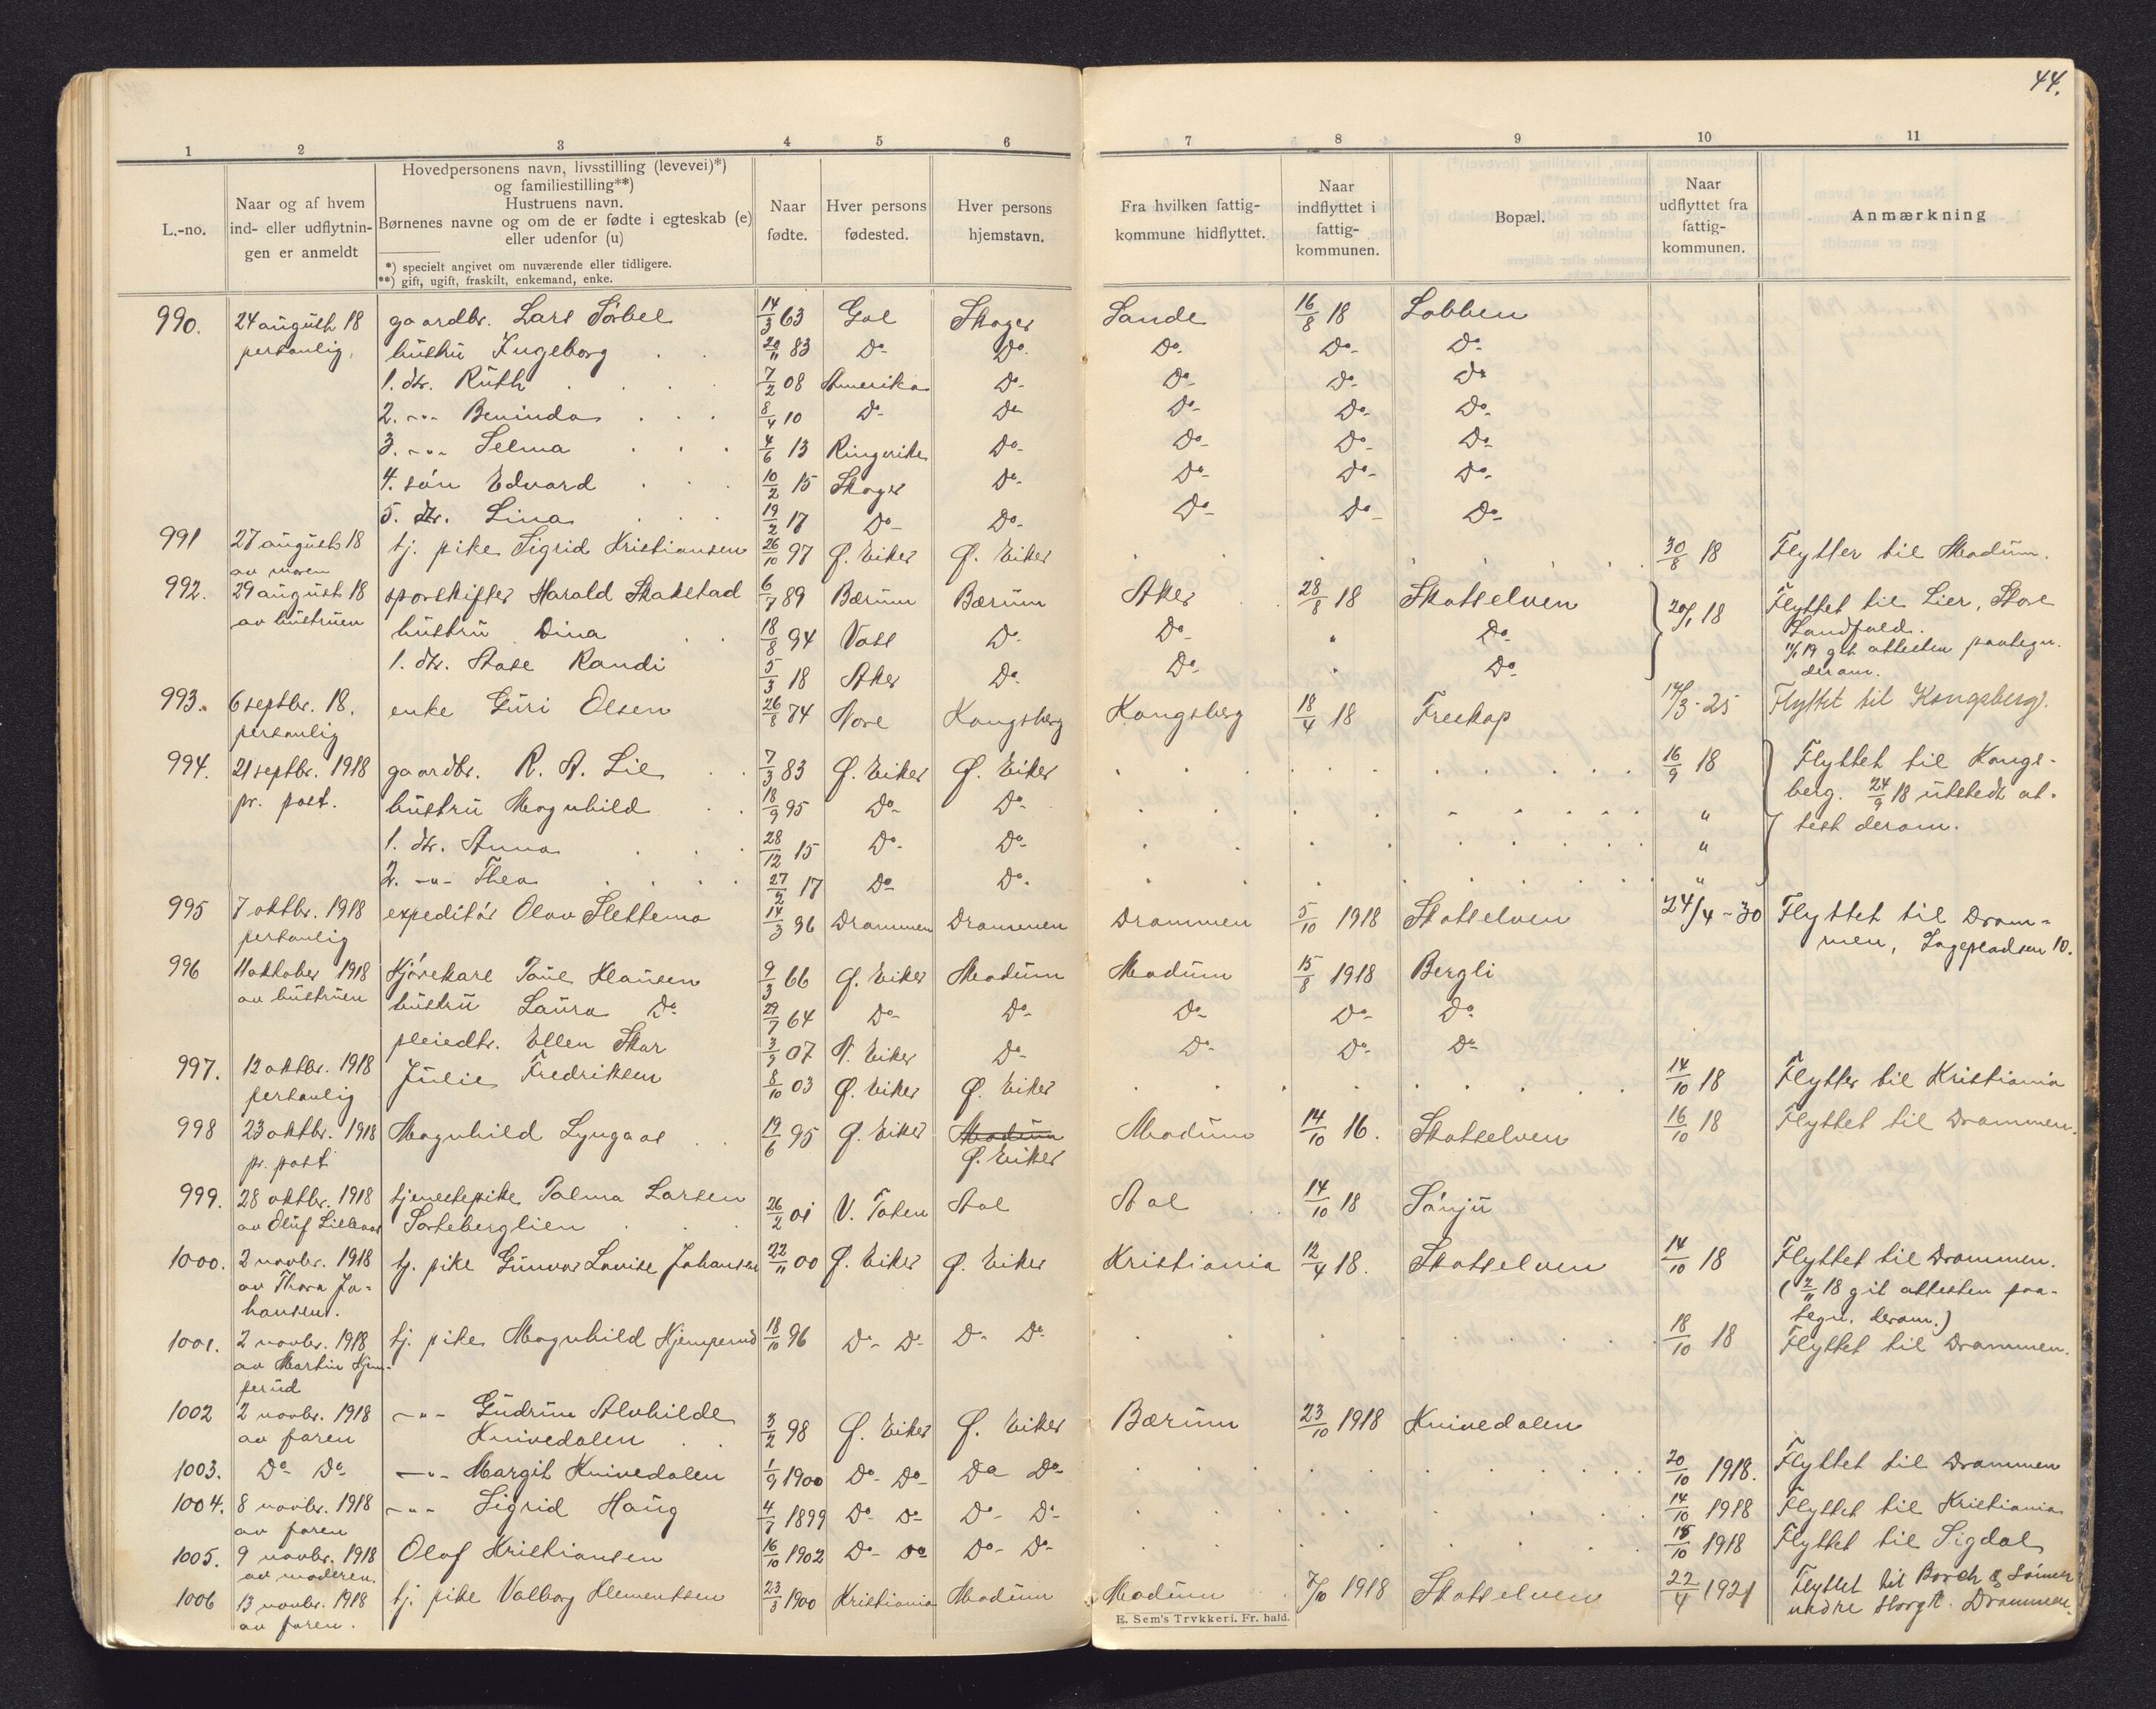 44.
1 2 3 4 5 6 7 8 9 10 11
L.-no.
Naar og af hvem
ind- eller udflytnin-
gen er anmeldt
Hovedpersonens navn, livsstilling (levevei)*)
og familiestilling**)
Hustruens navn.
Børnenes navne og om de er fødte i egteskab (e)
eller udenfor (u)
*) specielt angivet om nuværende eller tidligere.
**) gift, ugift, fraskilt, enkemand, enke.
Naar
fødte.
Hver persons
fødested.
Hver persons
hjemstavn.
Fra hvilken fattig-
kommune hidflyttet.
Naar
indflyttet i
fattig-
kommunen.
Bopæl.
Naar
udflyttet fra
fattig-
kommunen.
Anmærkning
990. 24 august 18 gaardbr. Lars Sørbel 14/3 63 Gol Skoger Sande 16/8 18 Lobben
personlig, hustru Ingeborg 20/11 83 Do- Do. Do- Do- Do-
1. dtr. Ruth 7/2 08 Amerika Do- Do- Do- Do
2. -"- Beninda 8/4 10 Do- Do Do- Do- Do-
3. -"- Selma 4/6 13 Ringerike Do- Do- Do- Do-
4. søn Edvard 10/2 15 Skoger Do- Do- Do- Do-
5. dtr. Lina 19/2 17 Do- Do- Do- Do- Do-
991 27 august 18 tj. pike Sigrid Kristiansen 26/10 97 Ø. Eiker Ø. Eiker 30/8 18 Flytter til Modum.
av moren
992. 29 august 18 sporskifter Harald Skakstad 6/7 89 Bærum Bærum Aker 28/8 18 Skotselven 20/1 18 Flyttet til Lier, Store
av hustruen hustru Dina 18/8 94 Voss Do- Do- " Do- Landfald.
1. dtr. Aase Randi 5/3 18 Aker Do- Do- " Do- 11/1 19 git attesten paategn.
derom.
993. 6 septbr. 18. enke Guri Olsen 26/8 74 Nore Kongsberg Kongsberg 18/4 18 Freskop 14/3-25 Flyttet til Kongsberg.
personlig
994. 21 septbr. 1918 gaardbr. R. A. Lie 7/3 83 Ø. Eiker Ø. Eiker 16/9 18 Flyttet til Kongs-
pr. post. hustru Magnhild 18/9 95 Do- Do- " berg. 24/9 18 utstedt at-
1. dtr. Anna 28/12 15 Do- Do- " test derom.
2. -"- Thea 27/2 17 Do- Do. "
995 7 oktbr. 1918 expeditør Olav Slettemo 14/3 96 Drammen Drammen Drammen 5/10 1918 Skotselven 24/4-30 Flyttet til Dram-
personlig men, Lagepladsen 10.
996 11 oktober 1918 Kjørekarl Paul Hansen 9/3 66 Ø. Eiker Modum Modum 15/8 1918 Bergli
av hustruen hustru Laura Do- 29/7 64 Do- Do- Do- Do- Do-
pleiedtr. Ellen Skar 3/9 07 N. Eiker Do- Do- Do- Do-
997. 12 oktbr. 1918 Julie Fredriksen 8/10 03 Ø. Eiker Ø. Eiker 14/10 18 Flytter til Kristiania
personlig
998 23 oktbr. 1918 Magnhild Lyngaas 19/6 95 Ø. Eiker Modum Modum 14/10 16. Skotselven 16/10 18 Flyttet til Drammen.
pr. post Ø. Eiker
999. 28 oktbr. 1918 tjenestepike Palma Larsen 26/2 01 V. Toten Aal Aal 14/10 18 Sønju
av Oluf Lilleaas Sorteberglien
1000. 2 novbr. 1918 tj. pike Gunvor Lovise Johansen 22/11 00 Ø. Eiker Ø. Eiker Kristiania 12/4 18. Skotselven 14/10 18 Flyttet til Drammen.
av Thora Jo- (2/11 18 git attesten paa-
hansen. tegn. derom.)
1001. 2 novbr. 1918 tj. pike Magnhild Hjemperud 18/10 96 Do- Do- Do- Do- 18/10 18 Flyttet til Drammen.
av Martin Hjem-
perud
1002 2 novbr. 1918 -"- Gudrun Alvhilde 3/2 98 Ø. Eiker Ø. Eiker Bærum 23/10 1918 Knivedalen
av faren Knivedalen
1003. Do- Do- -"- Margit Knivedalen 1/9 1900 Do- Do- Do Do- 20/10 1918. Flyttet til Drammen
1004. 8 novbr. 1918 -"- Sigrid Haug 4/7 1899 Do- Do- Do- Do- 14/10 1918 Flyttet til Kristiania
av faren
1005. 9 novbr. 1918 Olaf Kristiansen 16/10 1902 Do- Do Do- Do- 15/10 1918 Flyttet til Sigdal
av moderen.
1006 13 novbr. 1918 tj. pike Valborg Klementsen 23/3 1900 Kristiania Modum Modum 7/10 1918 Skotselven 22/4 1921 Flyttet til Borch & Sønner
av faren. nedre Storgt. Drammen.
E. Sem's Trykkeri. Fr. hald.